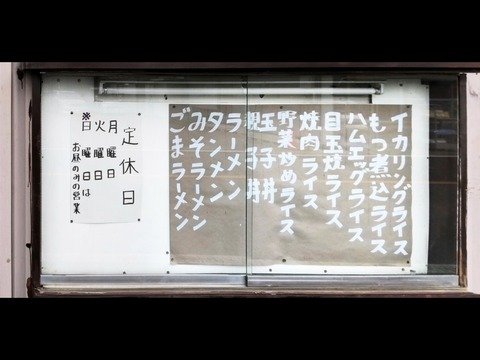 イカリングライス
もつ煮込ライス
ハムエッグライス
目玉焼ライス
焼肉ライス
野菜炒めライス
玉子丼
親子丼
ラーメン
タンメン
みそラーメン
ごまラーメン
定休日
月曜日
火曜日
※日曜日は
お昼のみの営業